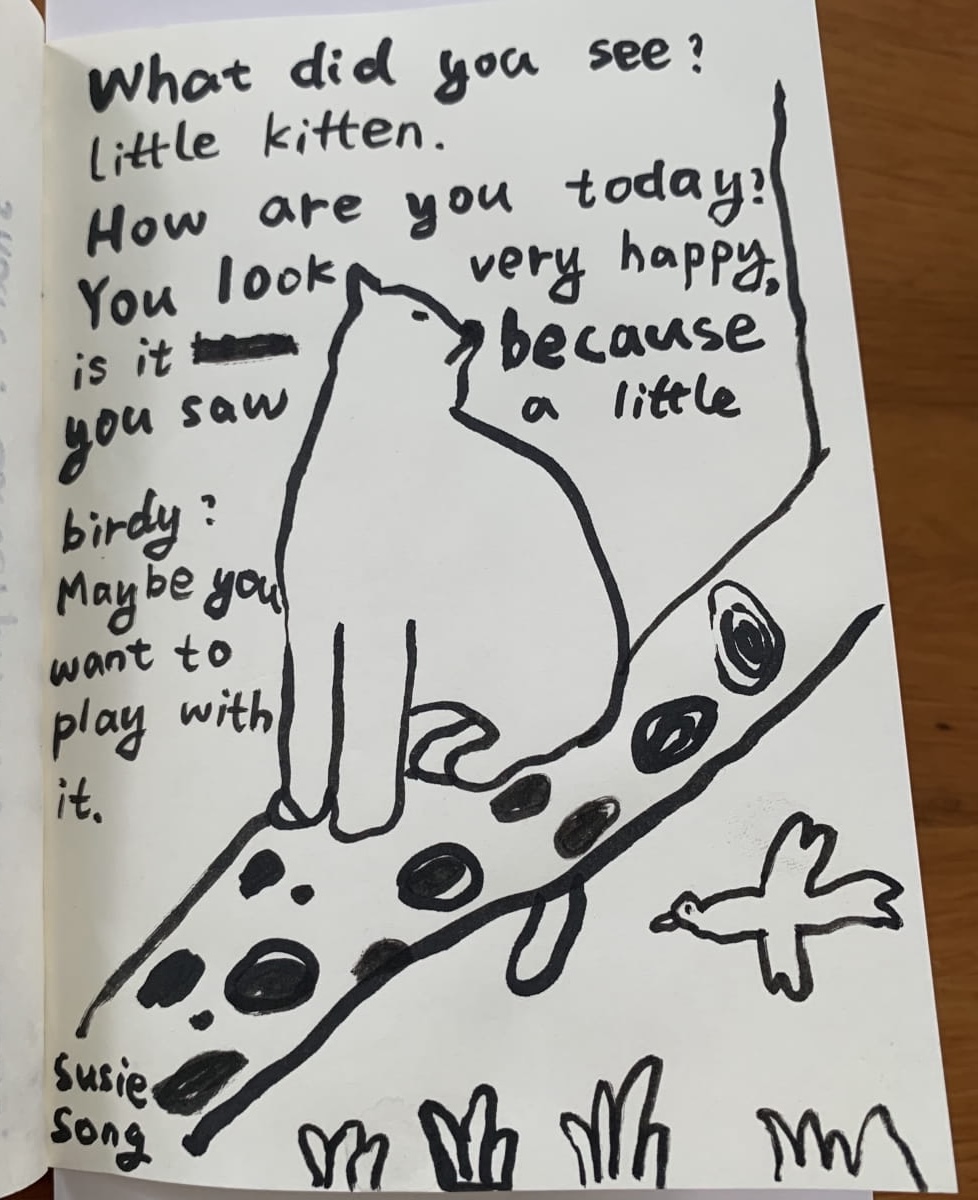 What did you see?
little kitten.
How are you today?
You look very happy,
is it because
you saw a little
birdy?
Maybe you
want to
play with
it.
Susie
Song